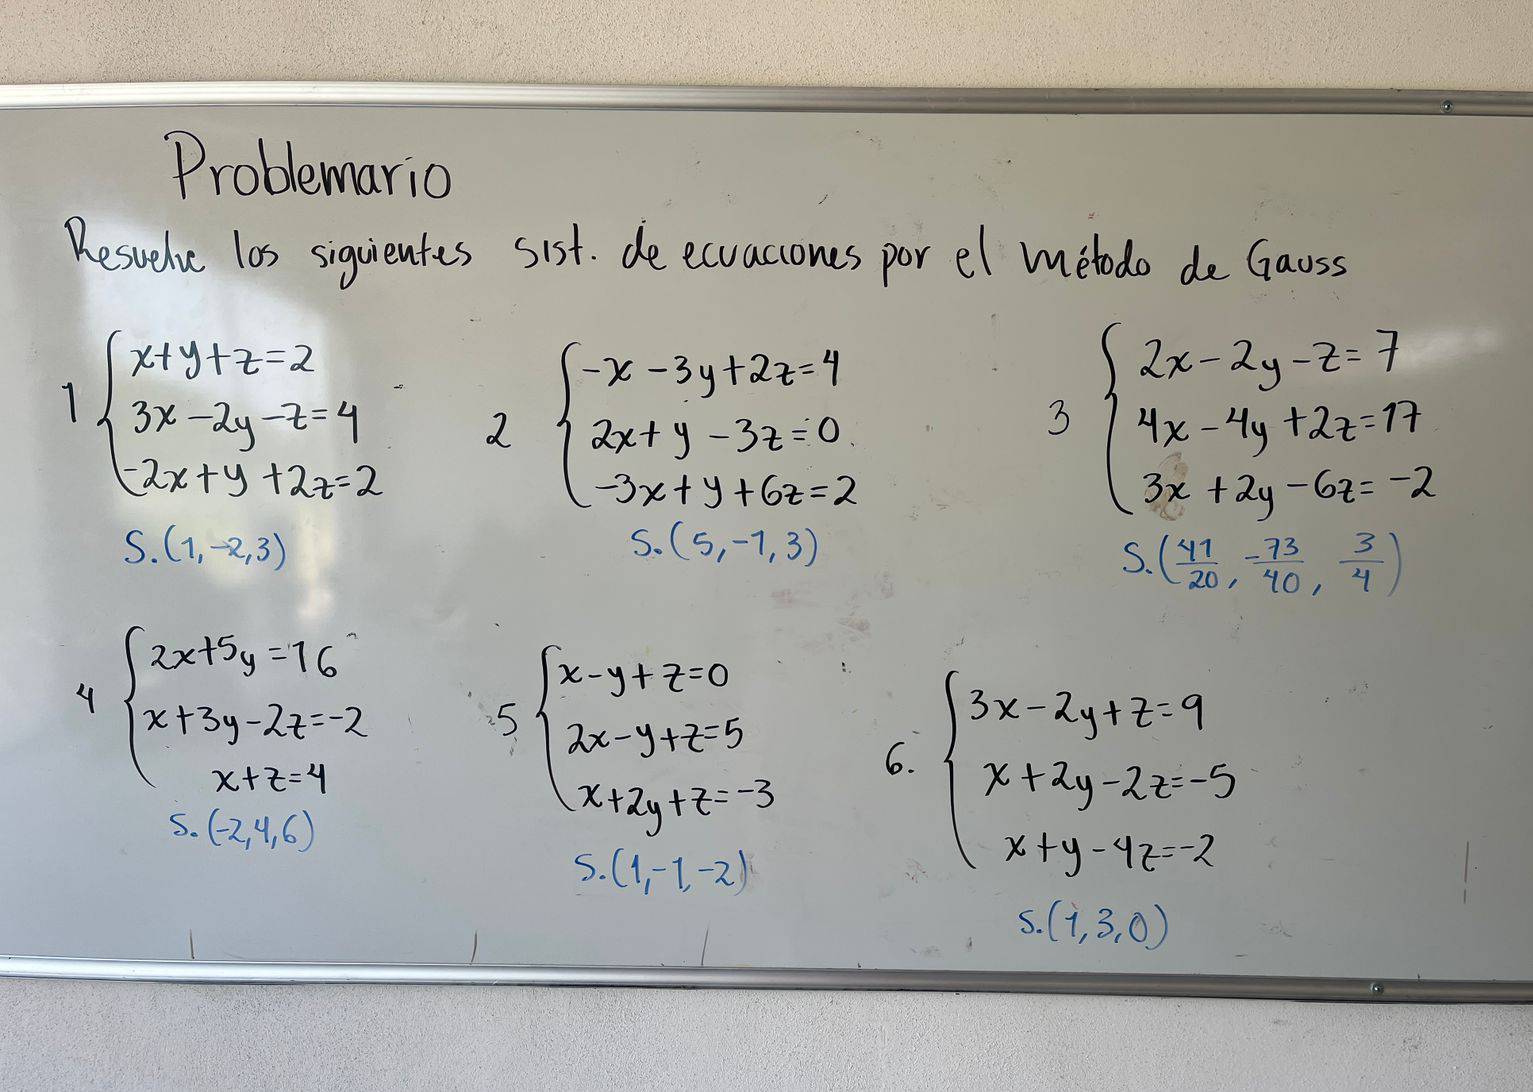 Problemario
Resuelve los siguientes sist. de ecuaciones por el método de Gauss
1
x+y+z=2
3x-2y-z=4
-2x+y+2z=2
S.(1,-2,3)
2
-x-3y+2z=4
2x+y-3z=0
-3x+y+6z=2
S.(5,-1,3)
3
2x-2y-z=7
4x-4y+2z=17
3x+2y-6z=-2
S.(41/20, -73/40, 3/4)
4
2x+5y=16
x+3y-2z=-2
x+z=4
S.(-2,4,6)
5
x-y+z=0
2x-y+z=5
x+2y+z=-3
S.(1,-1,-2)
6.
3x-2y+z=9
x+2y-2z=-5
x+y-4z=-2
S.(1,3,0)